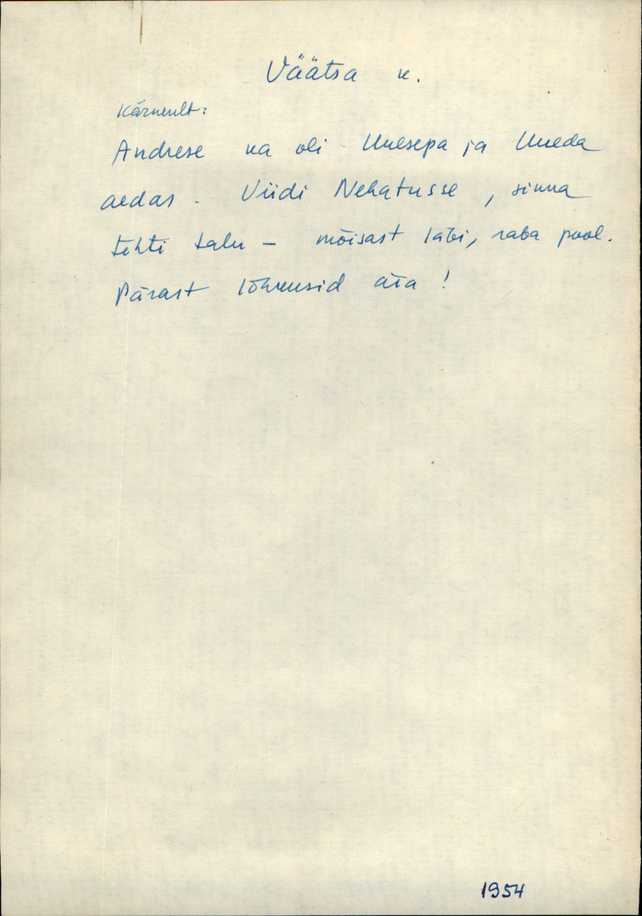 Väätsa k.
Kärnerilt:
Andrese ka oli Uuesepa ja Uueda
aedas. Viidi Nehatusse, sinna
tehti talu – mõisast läbi, raba pool.
Pärast lõhkusid ära!
1954